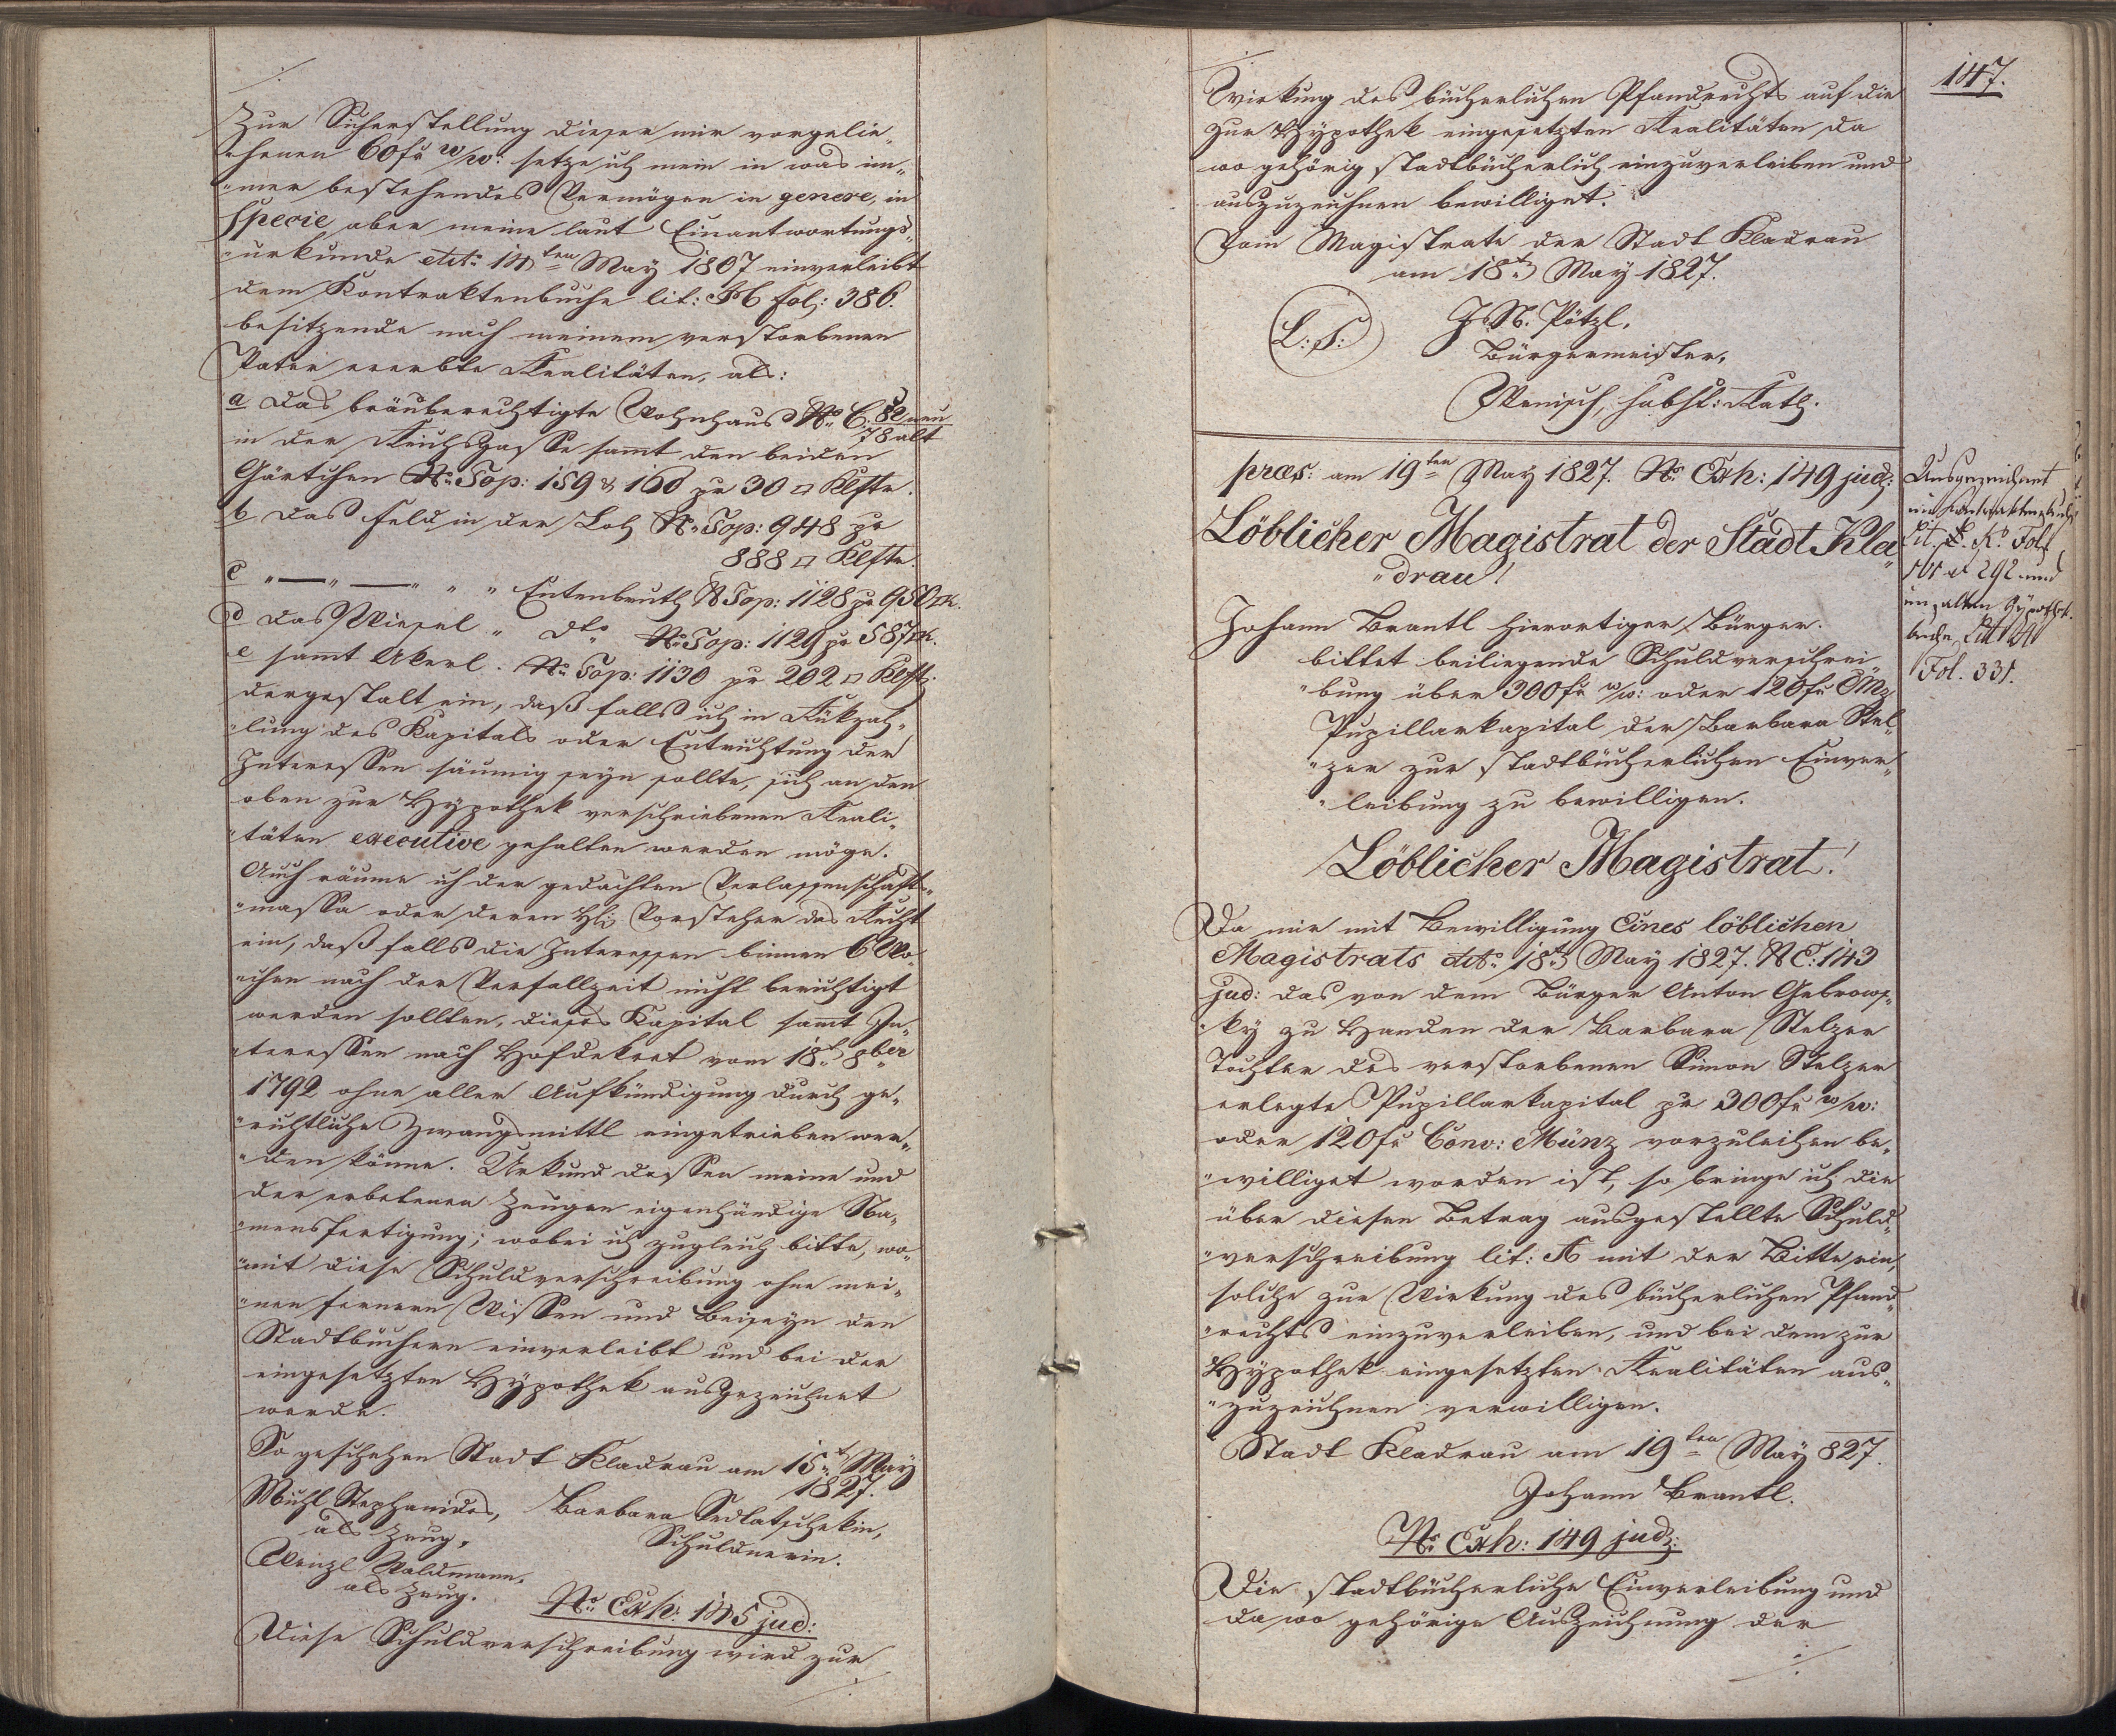 Zur Sicherstellung dieser mir vorgelie„
„henen 60 fr w/w: setze ich mein in was im„
„mer bestehendes Vermögen in genere, in
specie aber meine laut Einantwortungs„
„urkunde ddto 14ten May 1807 einverleibt
dem Kontraktenbuche lit: H fol: 386.
besitzende nach meinem verstorbenen
Vater ererbte Realitäten, als:
a das bräuberechtigte Wohnhaus No C. 82 neu
78 alt
in der Reichsgasse samt den beiden
Gärtchen No Top: 159 & 160 pr 30 □ Klftr.
b das Feld in der Loh No Top: 948 pr
888 □ Klftr.
c „—„—„ „ „ Entenbruth N Top: 1128 pr 950 □K.
d das Wiesel „ dto No Top: 1129 pr 587 □K.
e samt Akerl. No Top: 1130 pr 202 □ Klft:
dergestalt ein, daß falls ich in Rükzah„
„lung des Kapitals oder Entrichtung der
Interessen säumig seyn sollte, sich an den
oben zur Hypothek verschriebenen Reali„
„täten executive gehalten werden möge.
Auch räume ich der gedachten Verlassenschafts„
„massa oder deren H: Vorsteher das Recht
ein, daß falls die Interessen binnen 6 Wo„
„chen nach der Verfallzeit nicht berichtigt
werden sollten, dieses Kapital samt In„
„teressen nach Hofdekret vom 18t 8ber
1792 ohne aller Aufkündigung durch ge„
„richtliche Zwangsmittl eingetrieben wer„
„den könne. Urkund dessen meine und
der erbetenen Zeugen eigenhändige Na„
„mensfertigung; wobei ich zugleich bitte, wo„
„mit diese Schuldverschreibung ohne mei„
„nen fernern Wissen und Beiseyn den
Stadtbüchern einverleibt und bei der
eingesetzten Hypothek ausgezeichnet
werde.
So geschehen Stadt Kladrau am 15t May
1827.
Michl Stephanides, Barbara Sedlatschekin,
als Zeug, Schuldnerin.
Wenzl Waldmann,
als Zeug.
No Exh: 145 jud:
Diese Schuldverschreibung wird zur
147.
Wirkung des bücherlichen Pfandrechts auf die
zur Hypothek eingesetzten Realitäten da
wo gehörig stadtbücherlich einzuverleiben und
auszuzeichnen bewilliget.
Vom Magistrate der Stadt Kladrau
am 18t May 1827.
L: S: J. N. Pötzl,
Bürgermeister,
Wenisch, Rath.
præs: am 19ten May 1827. No Exh: 149 jud:
Löblicher Magistrat der Stadt Kla„
„drau!
Johann Brantl hierortiger Bürger.
bittet beiliegende Schuldverschrei„
„bung über 300 fr w/w: oder 120 fr CMz
Pupillarkapital der Barbara Stel„
„zer zur stadtbücherlichen Einver„
„leibung zu bewilligen.
Ausgezeichnet
im Kontraktenbuche
Lit. K. Fol
292 und
im alten Hypothek.
buche Litt
Fol. 331.
Löblicher Magistrat!
Da mir mit Bewilligung Eines löblichen
Magistrats ddto 18t May 1827. N E: 143
jud: das von dem Bürger Anton Gebrows„
„ky zu Handen der Barbara Stelzer
Tochter des verstorbenen Simon Stelzer
erlegte Pupillarkapital pr 300 fr w/w:
oder 120 fr Conv: Münz vorzuleihen be„
„williget worden ist, so bringe ich die
über diesen Betrag ausgestellte Schuld„
„verschreibung lit: A mit der Bitte ein,
solche zur Wirkung des bücherlichen Pfand„
„rechts einzuverleiben, und bei dem zur
Hypothek eingesetzten Realitäten aus„
„zuzeichnen verwilligen.
Stadt Kladrau am 19ten May 827.
Johann Brantl.
No Exh: 149 jud:
Die stadtbücherliche Einverleibung und
da wo gehörige Auszeichnung der